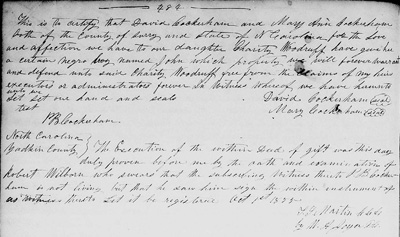 282
This is to certify that David Cockerham and Mary Ann Cockerham
both of the County of Surry and State of N Carolina for the Love
and affection we have to our daughter Charity Woodruff have given her
a certain negro boy named John which property we will forever warrant
and defend unto said Charity Woodruff free from the claims of my heirs
executors or administrators forever In Witness whereof, we have hereunto
set our hand and seals David Cockerham (seal)
test Mary Cockerham (seal)
P B Cockerham
North Carolina }
Yadkin County } The Execution of the within Deed of gift was this day
duly proven before me by the oath and examination of
Robert Wilborn who swears that the subscribing Witness thereto P B Cocker-
ham is not living but that he saw him sign the within instrument
as witness hereto Let it be registered Oct 1st